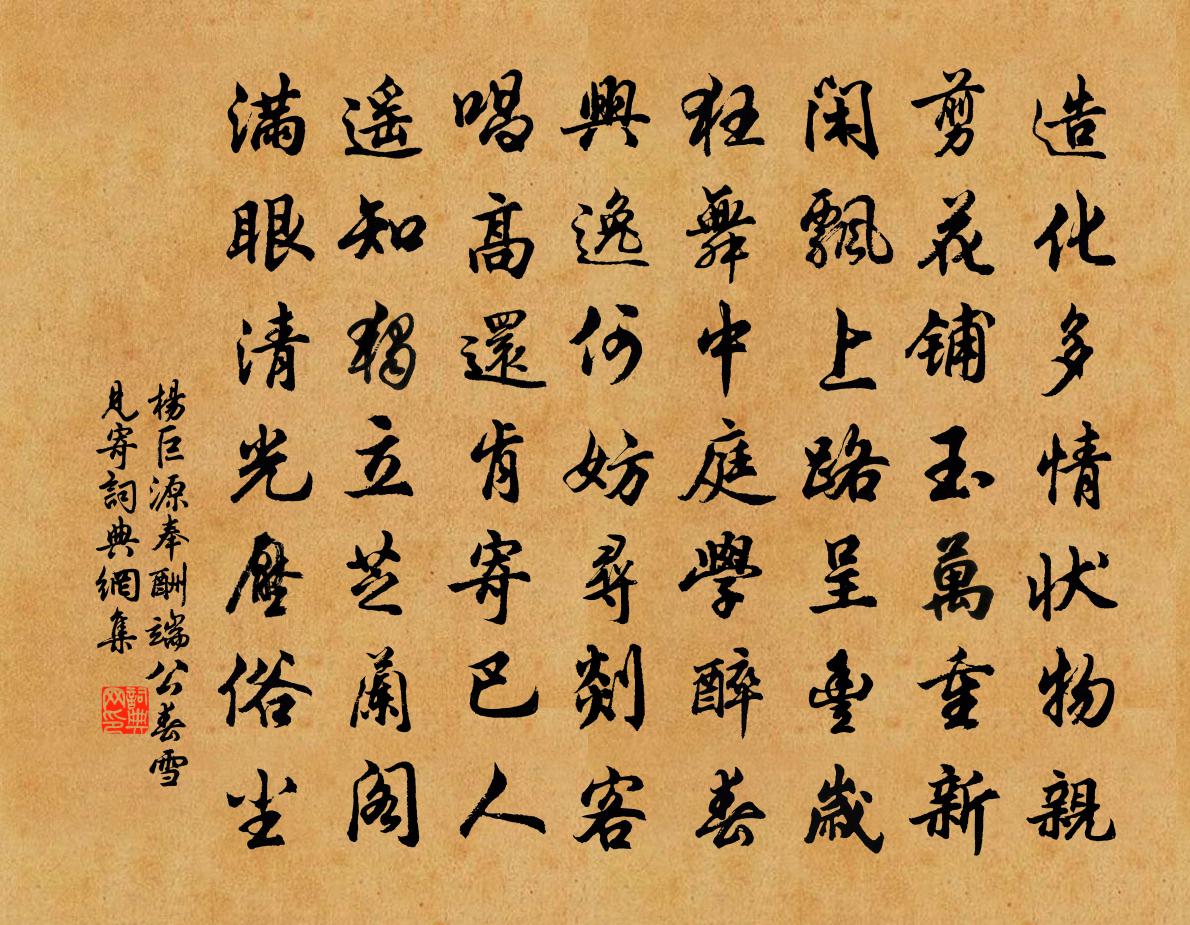 造化多情状物親
剪花铺玉萬重新
閑飄上路呈豐歲
狂舞中庭學醉春
興逸何妨尋剡客
唱高還肯寄巴人
遥知獨立芝蘭阁
满眼清光壓俗尘
楊巨源奉酬端公春雪
見寄詞典網集
詞典网印